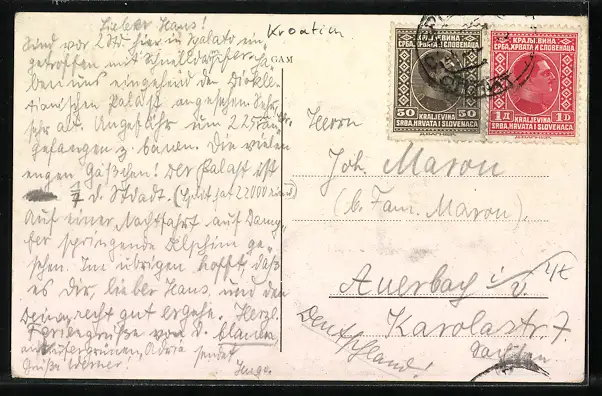 Lieber Hans!
Sind vor 2 Std. hier in Spalato ein-
getroffen mit Schnelldampfer. Ha-
ben uns eingehend den Diokle-
tianischen Palast angesehen. Sehr,
sehr alt. Ungefähr um 225 an-
gefangen z. bauen. Die vielen
engen Gäßchen! Der Palast ist
1/7 d. Stadt. (Split hat 22000 Einw.)
Auf einer Nachtfahrt auf Damp-
fer springende Delphine ge-
sehen. Im übrigen hofft, daß
es dir, lieber Hans, und den
Deinen recht gut ergehe. Herzl.
Feriengrüße von d. blauen,
Adria sendet
Grüße Werner!
Kroatien
GAM
КРАЉЕВИНА
СРБА, ХРВАТА И СЛОВЕНАЦА
50 50
KRALJEVINA
SRBA, HRVATA I SLOVENACA
КРАЉЕВИНА
СРБА, ХРВАТА И СЛОВЕНАЦА
1Д 1D
KRALJEVINA
SRBA, HRVATA I SLOVENACA
Herrn
Joh. Maron
(b. Fam. Maron).
Auerbach i/V.
Karolastr. 7.
Sachsen
Deutschland!